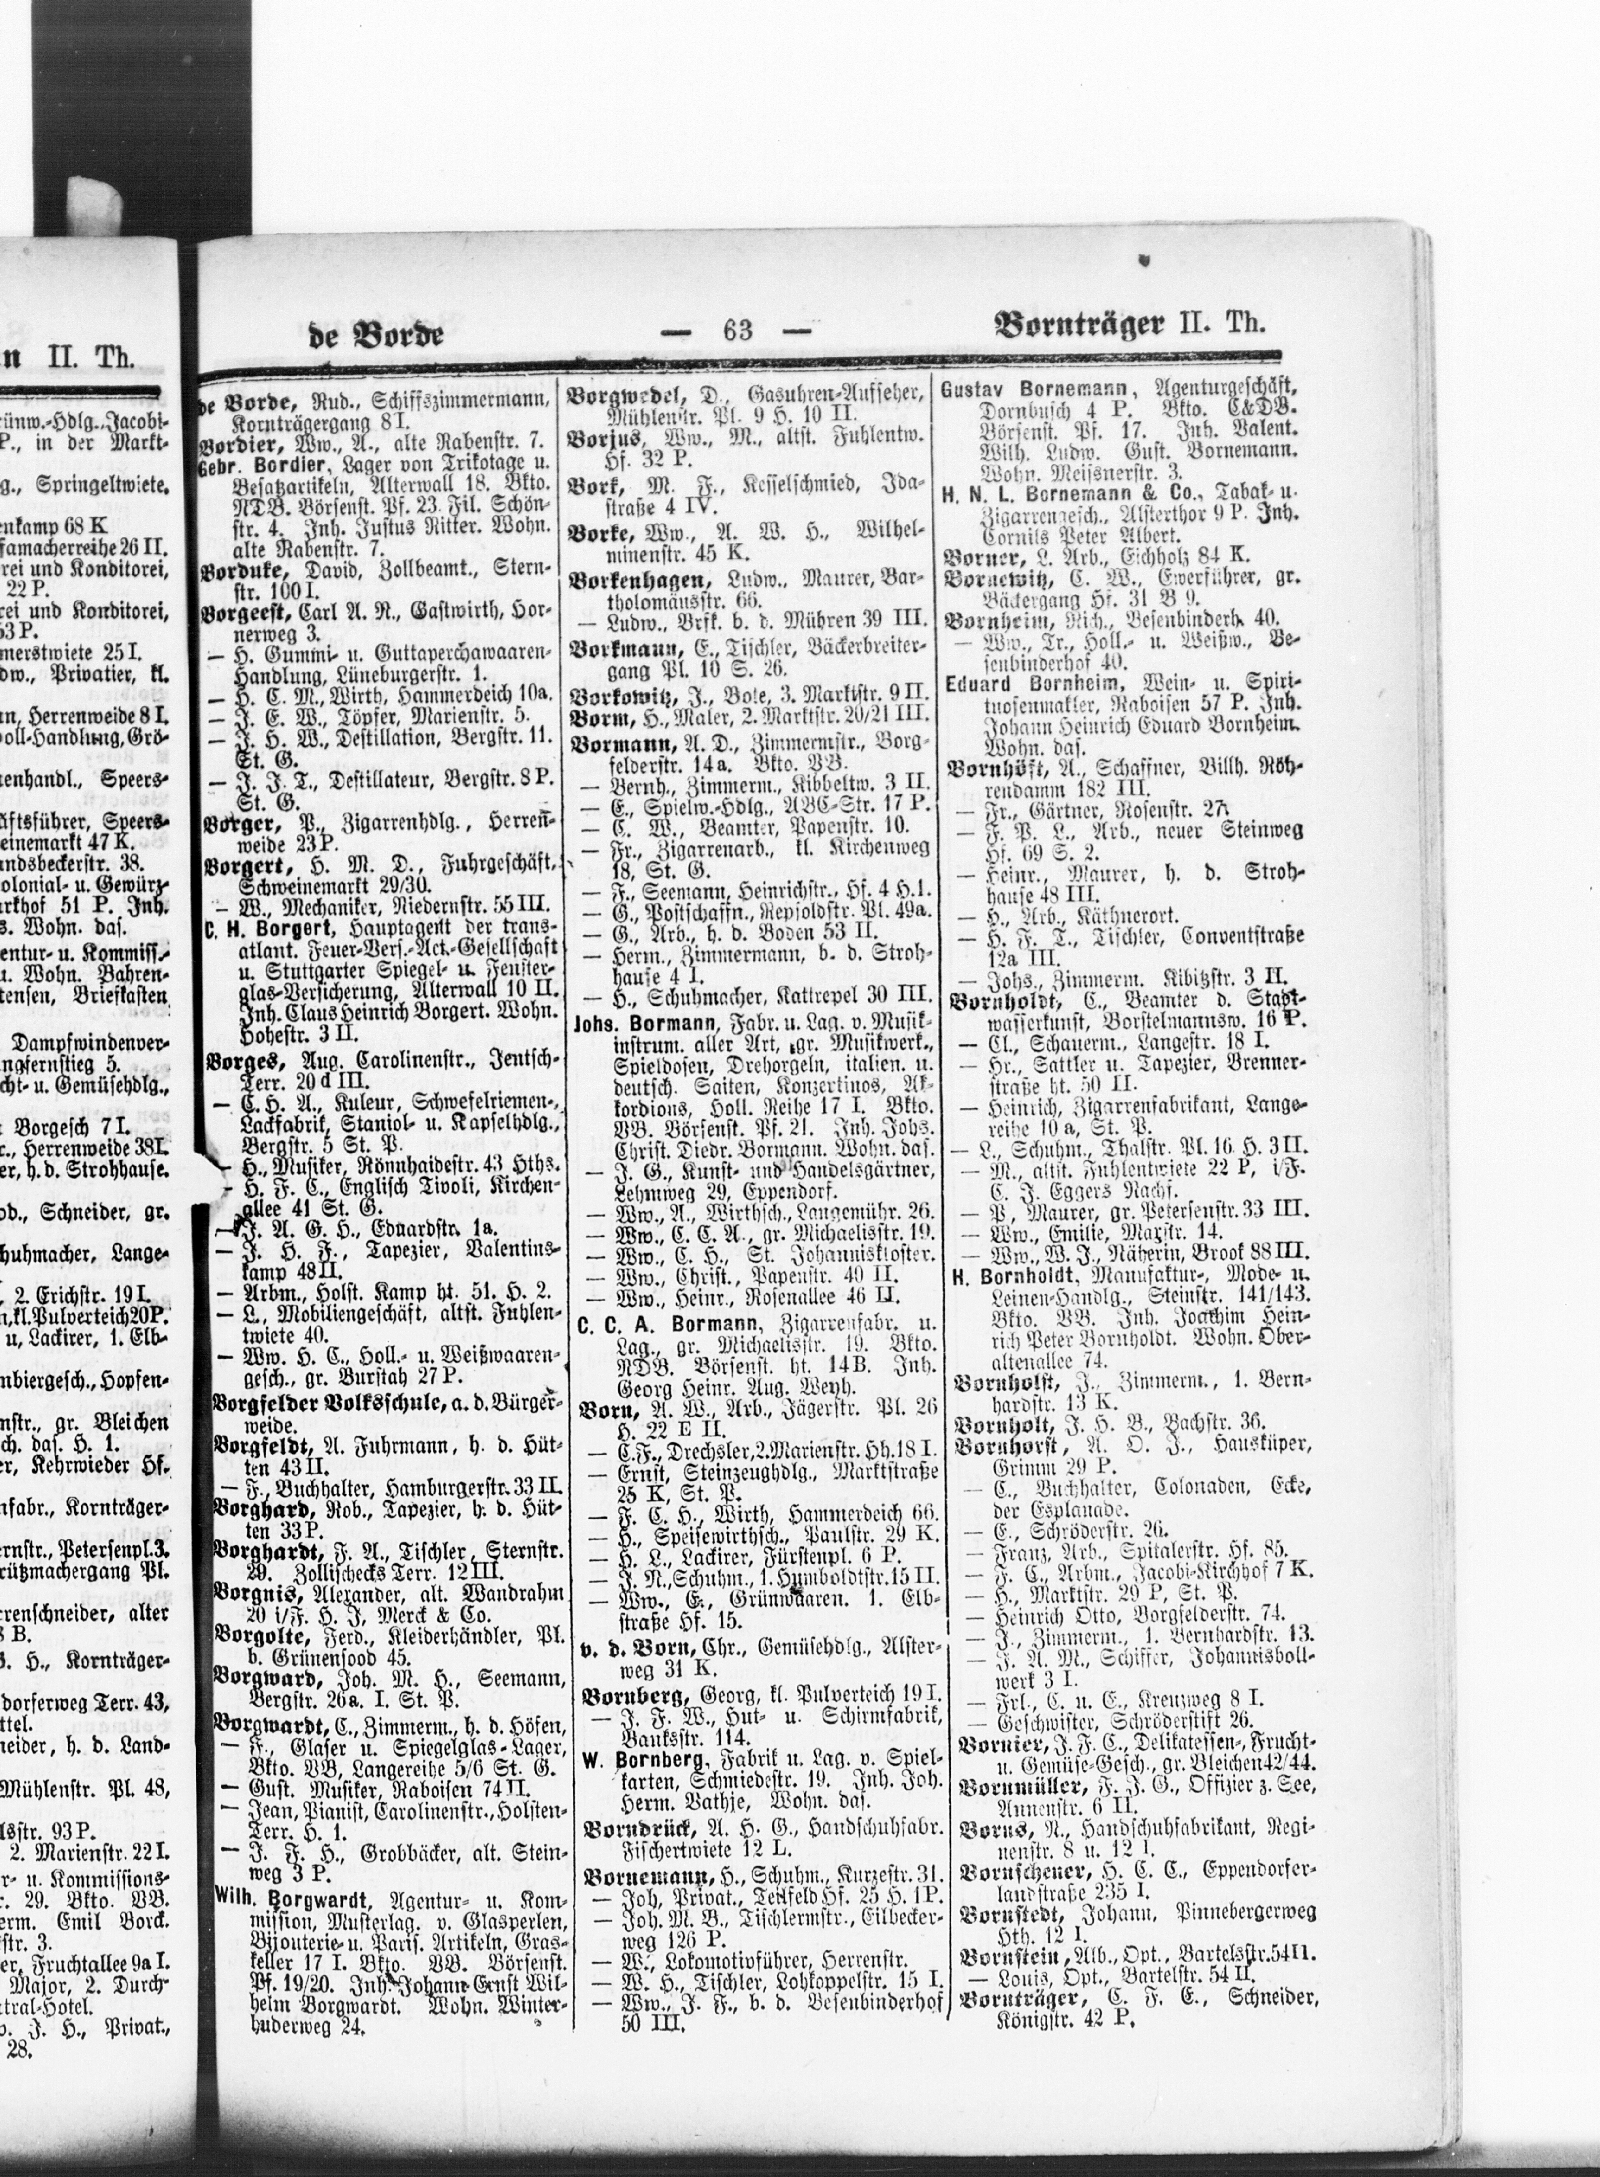 n II. Th.
rünw.-Hdlg., Jacobi-
P., in der Markt-
g., Springeltwiete.
enkamp 68 K
famacherreihe 26 II.
rei und Konditorei,
22 P.
rei und Konditorei,
53 P.
merstwiete 25 I.
dw., Privatier, kl.
nn, Herrenweide 8 I.
oll-Handlung, Grö-
enhandl., Speers-
äftsführer, Speers-
einemarkt 47 K.
andsbeckerstr. 38.
olonial- u. Gewürz-
rkhof 51 P. Inh.
s. Wohn. das.
entur- u. Kommiss.-
u. Wohn. Bahren-
tensen, Briefkasten
Dampfwindenver-
ngfernstieg 5.
cht- u. Gemüsehdlg.,
Borgesch 7 I.
r., Herrenweide 38 I.
er, h. d. Strohhause.
ob., Schneider, gr.
huhmacher, Lange-
2. Erichstr. 19 I.
n, kl. Pulverteich 20 P.
u, Lackirer, 1. Elb-
nbiergesch., Hopfen-
nstr., gr. Bleichen
ch. das. H. 1.
er, Kehrwieder Hf.
nfabr., Kornträger-
ernstr., Petersenpl. 3.
rützmachergang Pl.
rrenschneider, alter
8 B.
H., Kornträger-
dorferweg Terr. 43,
ttel.
neider, h. d. Land-
Mühlenstr. Pl. 48,
lsstr. 93 P.
2. Marienstr. 22 I.
r- u. Kommissions-
r. 29. Bkto. VB.
erm. Emil Borck.
str. 3.
er, Fruchtallee 9a I.
Major, 2. Durch-
tral-Hotel.
J. H., Privat.,
28.
de Borde — 63 — Bornträger II. Th.
de Borde, Rud., Schiffszimmermann,
Kornträgergang 8 I.
Bordier, Ww., A., alte Rabenstr. 7.
Gebr. Bordier, Lager von Trikotage u.
Besatzartikeln, Alterwall 18. Bkto.
NDB. Börsenst. Pf. 23. Fil. Schön-
str. 4. Inh. Justus Ritter. Wohn.
alte Rabenstr. 7.
Borduke, David, Zollbeamt., Stern-
str. 100 I.
Borgeest, Carl A. N., Gastwirth, Hor-
nerweg 3.
— H. Gummi- u. Guttaperchawaaren-
Handlung, Lüneburgerstr. 1.
— H. C. M., Wirth, Hammerdeich 10a.
— J. E. W., Töpfer, Marienstr. 5.
— J. H. W., Destillation, Bergstr. 11.
St. G.
— J. J. T., Destillateur, Bergstr. 8 P.
St. G.
Borger, P., Zigarrenhdlg., Herren-
weide 23 P.
Borgert, H. M. D., Fuhrgeschäft,
Schweinemarkt 29/30.
— W., Mechaniker, Niedernstr. 55 III.
C. H. Borgert, Hauptagent der trans-
atlant. Feuer-Vers.-Act.-Gesellschaft
u. Stuttgarter Spiegel- u. Fenster-
glas-Versicherung, Alterwall 10 II.
Inh. Claus Heinrich Borgert. Wohn.
Hohestr. 3 II.
Borges, Aug. Carolinenstr., Jentsch-
Terr. 20 d III.
— C. H. A., Kuleur, Schwefelriemen-,
Lackfabrik, Staniol- u. Kapselhdlg.,
Bergstr. 5 St. P.
— H., Musiker, Rönnhaidestr. 43 Hths.
— H. F. C., Englisch Tivoli, Kirchen-
allee 41 St. G.
— J. A. G. H., Eduardstr. 1a.
— J. H. F., Tapezier, Valentins-
kamp 48 II.
— Arbm., Holst. Kamp ht. 51. H. 2.
— L., Mobiliengeschäft, altst. Fuhlen-
twiete 40.
— Ww. H. C., Holl.- u. Weißwaaren-
gesch., gr. Burstah 27 P.
Borgfelder Volksschule, a. d. Bürger-
weide.
Borgfeldt, A. Fuhrmann, h. d. Hüt-
ten 43 II.
— F., Buchhalter, Hamburgerstr. 33 II.
Borghard, Rob., Tapezier, h. d. Hüt-
ten 33 P.
Borghardt, F. A., Tischler, Sternstr.
29. Zollischecks Terr. 12 III.
Borgnis, Alexander, alt. Wandrahm
20 i/F. H. J. Merck & Co.
Borgolte, Ferd., Kleiderhändler, Pl.
b. Grünensood 45.
Borgward, Joh. M. H., Seemann,
Bergstr. 26a. I. St. P.
Borgwardt, C., Zimmerm., h. d. Höfen,
— F., Glaser u. Spiegelglas-Lager,
Bkto. VB, Langereihe 5/6 St. G.
— Gust. Musiker, Raboisen 74 II.
— Jean, Pianist, Carolinenstr., Holsten-
Terr. H. 1.
— J. F. H., Grobbäcker, alt. Stein-
weg 3 P.
Wilh. Borgwardt, Agentur- u. Kom-
mission, Musterlag. v. Glasperlen,
Bijouterie- u. Paris. Artikeln, Gras-
keller 17 I. Bkto. VB. Börsenst.
Pf. 19/20. Inh. Johann Ernst Wil-
helm Borgwardt. Wohn. Winter-
huderweg 24.
Borgwedel, D., Gasuhren-Aufseher,
Mühlenstr. Pl. 9 H. 10 II.
Borjus, Ww., M., altst. Fuhlentw.
Hf. 32 P.
Bork, M. F., Kesselschmied, Ida-
straße 4 IV.
Borke, Ww., A. W. H., Wilhel-
minenstr. 45 K.
Borkenhagen, Ludw., Maurer, Bar-
tholomäusstr. 66.
— Ludw., Brfk. b. d. Mühren 39 III.
Borkmann, E., Tischler, Bäckerbreiter-
gang Pl. 10 S. 26.
Borkowitz, J., Bote, 3. Marktstr. 9 II.
Borm, H., Maler, 2. Marktstr. 20/21 III.
Bormann, A. D., Zimmermstr., Borg-
felderstr. 14a. Bkto. VB.
— Bernh., Zimmerm., Kibbeltw. 3 II.
— E., Spielw.-Hdlg., ABC-Str. 17 P.
— C. W., Beamter, Papenstr. 10.
— Fr., Zigarrenarb., kl. Kirchenweg
18, St. G.
— F., Seemann, Heinrichstr., Hf. 4 H. 1.
— G., Postschaffn., Repsoldstr. Pl. 49a.
— G., Arb., h. d. Boden 53 II.
— Herm., Zimmermann, b. d. Stroh-
hause 4 I.
— H., Schuhmacher, Kattrepel 30 III.
Johs. Bormann, Fabr. u. Lag. v. Musik-
instrum. aller Art, gr. Musikwerk.,
Spieldosen, Drehorgeln, italien. u.
deutsch. Saiten, Konzertinos, Ak-
kordions, Holl. Reihe 17 I. Bkto.
VB. Börsenst. Pf. 21. Inh. Johs.
Christ. Diedr. Bormann. Wohn. das.
— J. G., Kunst- und Handelsgärtner,
Lehmweg 29, Eppendorf.
— Ww., A., Wirthsch., Langemühr. 26.
— Ww., C. C. A., gr. Michaelisstr. 19.
— Ww., C. H., St. Johanniskloster.
— Ww., Christ., Papenstr. 40 II.
— Ww., Heinr., Rosenallee 46 II.
C. C. A. Bormann, Zigarrenfabr. u.
Lag., gr. Michaelisstr. 19. Bkto.
NDB. Börsenst. ht. 14B. Inh.
Georg Heinr. Aug. Weyh.
Born, A. W., Arb., Jägerstr. Pl. 26
H. 22 E II.
— C. F., Drechsler, 2. Marienstr. Hh. 18 I.
— Ernst, Steinzeughdlg., Marktstraße
25 K, St. P.
— F. C. H., Wirth, Hammerdeich 66.
— H., Speisewirthsch., Paulstr. 29 K.
— H. L., Lackirer, Fürstenpl. 6 P.
— J. N., Schuhm., 1. Humboldtstr. 15 II.
— Ww., E., Grünwaaren. 1. Elb-
straße Hf. 15.
v. d. Born, Chr., Gemüsehdlg., Alster-
weg 31 K.
Bornberg, Georg, kl. Pulverteich 19 I.
— J. F. W., Hut- u. Schirmfabrik,
Banksstr. 114.
W. Bornberg, Fabrik u. Lag. v. Spiel-
karten, Schmiedestr. 19. Inh. Joh.
Herm. Vathje, Wohn. das.
Borndrück, A. H. G., Handschuhfabr.
Fischertwiete 12 L.
Bornemann, H., Schuhm., Kurzestr. 31.
— Joh, Privat., Teilfeld Hf. 25 H. 1 P.
— Joh. M. B., Tischlermstr., Eilbecker-
weg 126 P.
— W., Lokomotivführer, Herrenstr.
— W. H., Tischler, Lohkoppelstr. 15 I.
— Ww., J. F., b. d. Besenbinderhof
50 III.
Gustav Bornemann, Agenturgeschäft,
Dornbusch 4 P. Bkto. C&DB.
Börsenst. Pf. 17. Inh. Valent.
Wilh. Ludw. Gust. Bornemann.
Wohn. Meissnerstr. 3.
H. N. L. Bornemann & Co., Tabak- u.
Zigarrengesch., Alsterthor 9 P. Inh.
Cornils Peter Albert.
Borner, L. Arb., Eichholz 84 K.
Bornewitz, C. W., Ewerführer, gr.
Bäckergang Hf. 31 B 9.
Bornheim, Rich., Besenbinderh. 40.
— Ww., Tr., Holl.- u. Weißw., Be-
senbinderhof 40.
Eduard Bornheim, Wein- u. Spiri-
tuosenmakler, Raboisen 57 P. Inh.
Johann Heinrich Eduard Bornheim.
Wohn. das.
Bornhöft, A., Schaffner, Billh. Röh-
rendamm 182 III.
— Fr., Gärtner, Rosenstr. 27.
— F. P. L., Arb., neuer Steinweg
Hf. 69 S. 2.
— Heinr., Maurer, h. d. Stroh-
hause 48 III.
— H., Arb., Käthnerort.
— H. F. T., Tischler, Conventstraße
12a III.
— Johs., Zimmerm. Kibitzstr. 3 II.
Bornholdt, C., Beamter d. Stadt-
wasserkunst, Borstelmannsw. 16 P.
— Cl., Schauerm., Langestr. 18 I.
— Hr., Sattler u. Tapezier, Brenner-
straße ht. 50 II.
— Heinrich, Zigarrenfabrikant, Lange-
reihe 10 a, St. P.
— L., Schuhm., Thalstr. Pl. 16 H. 3 II.
— M., altst. Fuhlentwiete 22 P, i/F.
C. J. Eggers Nachf.
— P, Maurer, gr. Petersenstr. 33 III.
— Ww., Emilie, Marxstr. 14.
— Ww., W. J., Näherin, Brook 88 III.
H. Bornholdt, Manufaktur-, Mode- u.
Leinen-Handlg., Steinstr. 141/143.
Bkto. VB. Inh. Joachim Hein-
rich Peter Bornholdt. Wohn. Ober-
altenallee 74.
Bornholst, J., Zimmerm., 1. Bern-
hardstr. 13 K.
Bornholt, J. H. B., Bachstr. 36.
Bornhorst, A. O. J., Hausküper,
Grimm 29 P.
— C., Buchhalter, Colonaden, Ecke,
der Esplanade.
— E., Schröderstr. 26.
— Franz, Arb., Spitalerstr. Hf. 85.
— F. C., Arbm., Jacobi-Kirchhof 7 K.
— H., Marktstr. 29 P, St. P.
— Heinrich Otto, Borgfelderstr. 74.
— J., Zimmerm., 1. Bernhardstr. 13.
— J. A. M., Schiffer, Johannisboll-
werk 3 I.
— Frl., C. u. E., Kreuzweg 8 I.
— Geschwister, Schröderstift 26.
Bornier, J. F. C., Delikatessen-, Frucht-
u. Gemüse-Gesch., gr. Bleichen 42/44.
Bornmüller, F. J. G., Offizier z. See,
Annenstr. 6 II.
Borns, N., Handschuhfabrikant, Regi-
nenstr. 8 u. 12 I.
Bornscheuer, H. C. C., Eppendorfer-
landstraße 235 I.
Bornstedt, Johann, Pinnebergerweg
Hth. 12 I.
Bornstein, Alb., Opt., Bartelsstr. 54 II.
— Louis, Opt., Bartelstr. 54 II.
Bornträger, C. F. E., Schneider,
Königstr. 42 P.